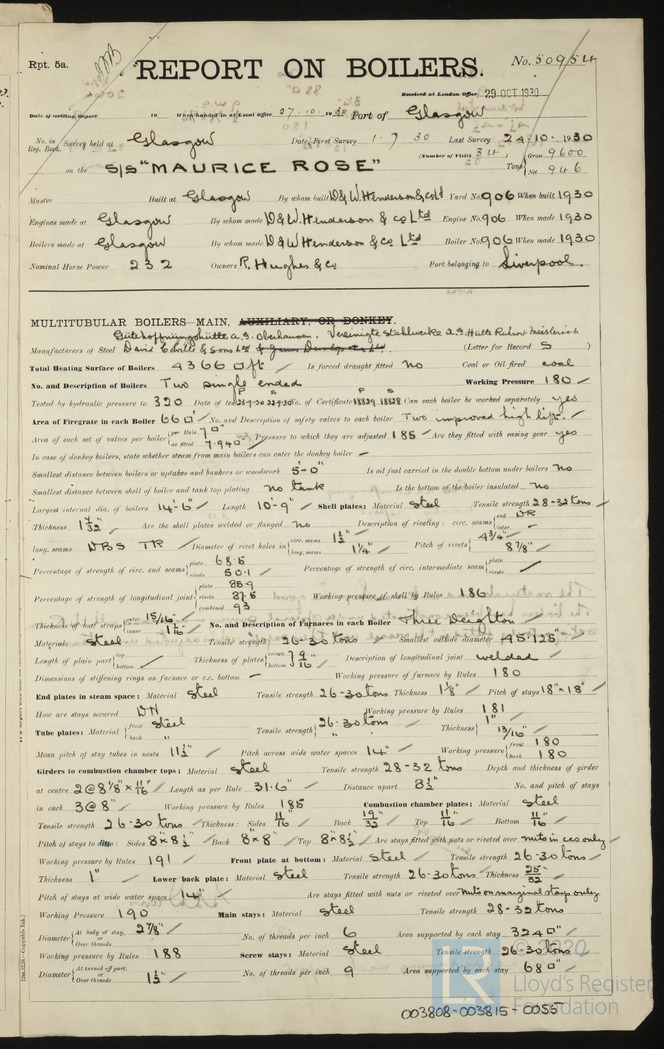 Rpt. 5a.
REPORT ON BOILERS.
No. 50954
Received at London Office 29 OCT 1930
Date of writing Report to When handed in at Local Office 27.10. to 30 Port of Glasgow
No. in Reg. Book. Survey held at Glasgow Date, First Survey 1. 7 30 Last Survey 24-10-1930
on the S/S "MAURICE ROSE" (Number of Visits 34 ) Tons Gross 9600 Net 946
Master Built at Glasgow By whom built D & W. Henderson & Co Ld Yard No. 906 When built 1930
Engines made at Glasgow By whom made D & W. Henderson & Co Ltd Engine No. 906 When made 1930
Boilers made at Glasgow By whom made D & W Henderson & Co Ltd Boiler No. 906 When made 1930
Nominal Horse Power 232 Owners R. Hughes & Co Port belonging to Liverpool.
MULTITUBULAR BOILERS—MAIN, AUXILIARY, OR DONKEY.
Gutehoffnungshütte A.G. Oberhausen. Vereinigte Stahlwerke A.G. Hutte Ruhrort Meiderich
Manufacturers of Steel David Colville & Sons Ld & James Dunlop & Co Ld. (Letter for Record S )
Total Heating Surface of Boilers 4366 □ft Is forced draught fitted No Coal or Oil fired coal
No. and Description of Boilers Two single ended Working Pressure 180
Tested by hydraulic pressure to 320 Date of test P 23.9.30 S 22.9.30 No. of Certificate P 18829 S 18828 Can each boiler be worked separately yes
Area of Firegrate in each Boiler 66 □' No. and Description of safety valves to each boiler Two improved high lift.
Area of each set of valves per boiler per Rule 7 □" as fitted 7.940 □" Pressure to which they are adjusted 185 Are they fitted with easing gear yes
In case of donkey boilers, state whether steam from main boilers can enter the donkey boiler –
Smallest distance between boilers or uptakes and bunkers or woodwork 5'-0" Is oil fuel carried in the double bottom under boilers No
Smallest distance between shell of boiler and tank top plating No tank Is the bottom of the boiler insulated No
Largest internal dia. of boilers 14'-6" Length 10'-9" Shell plates: Material Steel Tensile strength 28-32 tons
Thickness 1 1/32" Are the shell plates welded or flanged No Description of riveting: circ. seams end DR inter.
long. seams DBS TR Diameter of rivet holes in circ. seams 1 1/2" long. seams 1 1/4" Pitch of rivets 4 3/4" 8 7/8"
Percentage of strength of circ. end seams plate 68.5 rivets 50.1 Percentage of strength of circ. intermediate seam plate rivets
Percentage of strength of longitudinal joint plate 85.9 rivets 87.5 combined 93 Working pressure of shell by Rules 186
Thickness of butt straps outer 15/16" inner 1 1/16" No. and Description of furnaces in each Boiler Three Deighton
Material Steel Tensile strength 26-30 tons Smallest outside diameter 45.125"
Length of plain part top bottom Thickness of plates crown bottom 9/16 Description of longitudinal joint welded
Dimensions of stiffening rings on furnace or c.c. bottom – Working pressure of furnace by Rules 180
End plates in steam space: Material Steel Tensile strength 26-30 tons Thickness 1 1/8" Pitch of stays 18" x 18"
How are stays secured DN Working pressure by Rules 181
Tube plates: Material front Steel back " Tensile strength 26-30 tons " Thickness 1" 13/16"
Mean pitch of stay tubes in nests 11 1/2" Pitch across wide water spaces 14" Working pressure front 180 back 180
Girders to combustion chamber tops: Material Steel Tensile strength 28-32 tons Depth and thickness of girder
at centre 2 @ 8 1/8" x 11/16" Length as per Rule 31.6" Distance apart 8 1/2" No. and pitch of stays
in each 3 @ 8" Working pressure by Rules 185 Combustion chamber plates: Material Steel
Tensile strength 26-30 tons Thickness: Sides 11/16" Back 19/32" Top 11/16" Bottom 11/16"
Pitch of stays to ditto: Sides 8" x 8 1/2" Back 8" x 8" Top 8" x 8 1/2" Are stays fitted with nuts or riveted over nuts in ccs only
Working pressure by Rules 191 Front plate at bottom: Material Steel Tensile strength 26-30 tons
Thickness 1" Lower back plate: Material Steel Tensile strength 26-30 tons Thickness 25/32"
Pitch of stays at wide water space 14" Are stays fitted with nuts or riveted over Nuts on marginal stays only
Working Pressure 190 Main stays: Material Steel Tensile strength 28-32 tons
Diameter At body of stay, or Over threads 2 7/8" No. of threads per inch 6 Area supported by each stay 324 □"
Working pressure by Rules 188 Screw stays: Material Steel Tensile strength 26-30 tons
Diameter At turned off part, or Over threads 1 1/2" No. of threads per inch 9 Area supported by each stay 68 □"
© 2020
LR
Lloyd's Register
Foundation
003808-003815-0055